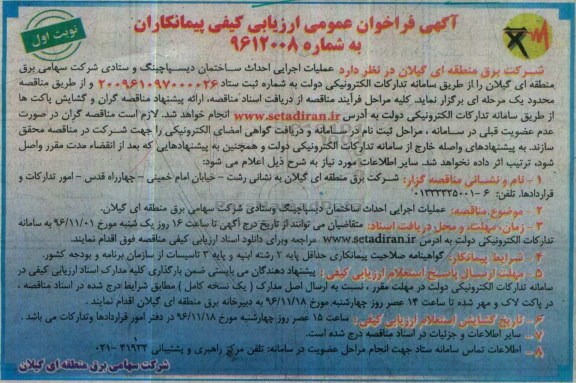 آگهی فراخوان عمومی ارزیابی کیفی پیمانکاران
به شماره ۹۶۱۲۰۰۸
نوبت اول
شرکت برق منطقه ای گیلان در نظر دارد عملیات اجرایی احداث ساختمان دیسپاچینگ و ستادی شرکت سهامی برق
منطقه ای گیلان را از طریق سامانه تدارکات الکترونیکی دولت به شماره ثبت ستاد ۲۰۰۹۶۱۰۹۷۰۰۰۰۰۲۶ و از طریق مناقصه
محدود یک مرحله ای برگزار نماید. کلیه مراحل فرآیند مناقصه از دریافت اسناد مناقصه، ارائه پیشنهاد مناقصه گران و گشایش پاکت ها
از طریق سامانه تدارکات الکترونیکی دولت به آدرس www.setadiran.ir انجام خواهد شد. لازم است مناقصه گران در صورت
عدم عضویت قبلی در سامانه، مراحل ثبت نام در سامانه و دریافت گواهی امضای الکترونیکی را جهت شرکت در مناقصه محقق
سازند. به پیشنهادهای واصله خارج از سامانه تدارکات الکترونیکی دولت و همچنین به پیشنهادهایی که بعد از انقضاء مدت مقرر واصل
شود، ترتیب اثر داده نخواهد شد. سایر اطلاعات مورد نیاز به شرح ذیل اعلام می شود:
۱ - نام و نشانی مناقصه گزار: شرکت برق منطقه ای گیلان به نشانی رشت - خیابان امام خمینی - چهارراه قدس - امور تدارکات و
قراردادها. تلفن: ۶ -۰۱۳۳۳۳۳۵۰۰۱
۲ - موضوع مناقصه: عملیات اجرایی احداث ساختمان دیسپاچینگ وستادی شرکت سهامی برق منطقه ای گیلان.
۳ - زمان، مهلت، و محل دریافت اسناد: متقاضیان می توانند از تاریخ درج آگهی تا ساعت ۱۶ روز یک شنبه مورخ ۹۶/۱۱/۰۱ به سامانه
تدارکات الکترونیکی دولت به آدرس www.setadiran.ir مراجعه وبرای دانلود اسناد ارزیابی کیفی مناقصه فوق اقدام نمایند.
۴ - شرایط پیمانکار: گواهینامه صلاحیت پیمانکاری حداقل پایه ۲ رشته ابنیه و پایه ۳ تاسیسات از سازمان برنامه و بودجه کشور.
۵ - مهلت ارسال پاسخ استعلام ارزیابی کیفی: پیشنهاد دهندگان می بایستی ضمن بارگذاری کلیه مدارک اسناد ارزیابی کیفی در
سامانه تدارکات الکترونیکی دولت در مهلت مقرر، نسبت به ارسال اصل مدارک ( یک نسخه کامل ) مطابق شرایط درج شده در اسناد مناقصه،
در پاکت لاک و مهر شده تا ساعت ۱۴ عصر روز چهارشنبه مورخ ۹۶/۱۱/۱۸ به دبیرخانه برق منطقه ای گیلان اقدام نمایند.
۶ - تاریخ گشایش استعلام ارزیابی کیفی: ساعت ۱۵ عصر روز چهارشنبه مورخ ۹۶/۱۱/۱۸ در دفتر امور قراردادها وتدارکات می باشد.
۷ - سایر اطلاعات و جزئیات در اسناد مناقصه درج شده است.
۸ - اطلاعات تماس سامانه ستاد جهت انجام مراحل عضویت در سامانه: تلفن مرکز راهبری و پشتیبانی ۴۱۹۳۴-۰۲۱
شرکت سهامی برق منطقه ای گیلان